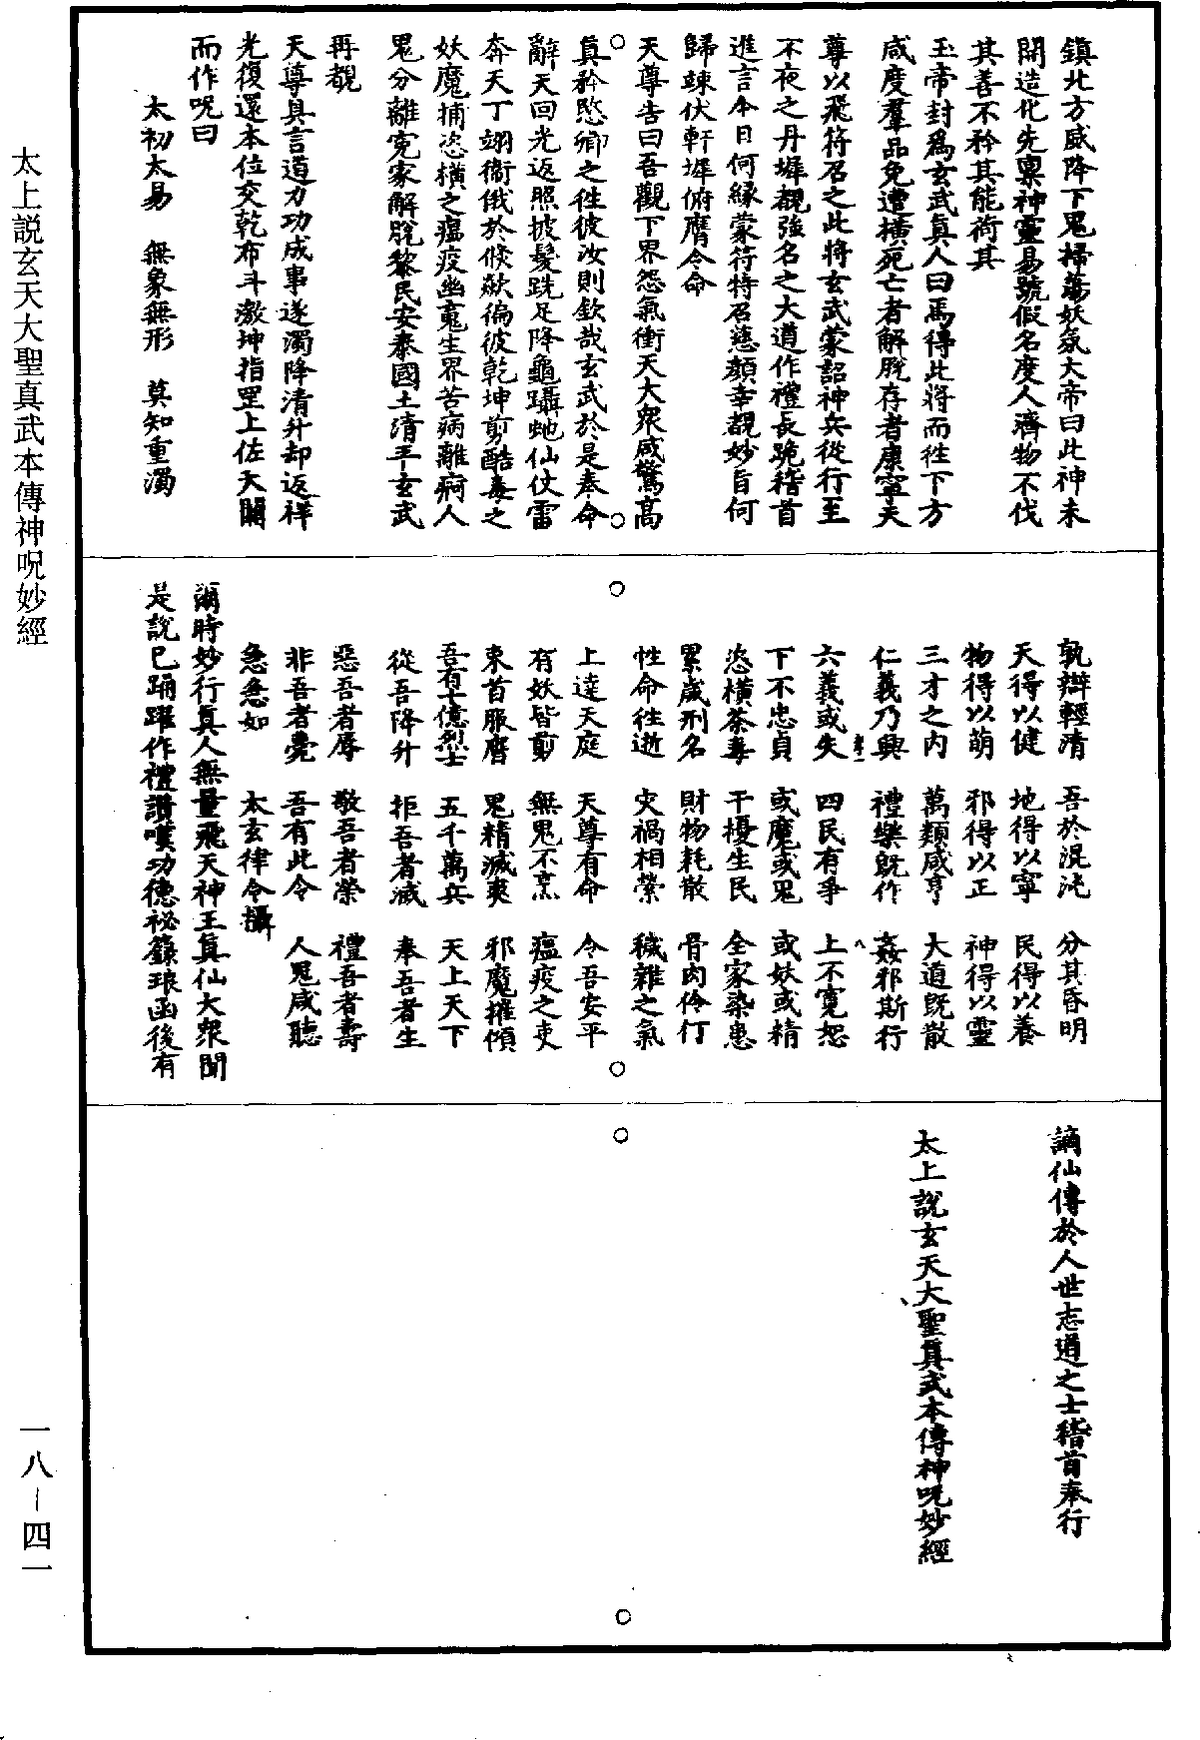 鎮北方威降下鬼掃蕩妖氛大帝曰此神未
開造化先稟神靈易號假名度人濟物不伐
其善不矜其能荷其
玉帝封為玄武真人曰焉得此將而往下方
咸度羣品免遭橫死亡者解脫存者康寧天
尊以飛符召之此將玄武蒙詔神兵從行至
不夜之丹墀覩強名之大道作禮長跪稽首
進言今日何緣蒙符特召慈顏幸覩妙旨何
歸竦伏軒墀俯膺令命
天尊告曰吾觀下界怨氣衝天大眾咸驚高
真矜愍卿之往彼汝則欽哉玄武於是奉命
辭天回光返照披髮跣足降龜躡虵仙仗雷
奔天丁翊衞俄於倐歘徧彼乾坤剪酷毒之
妖魔捕恣橫之瘟疫幽䰟生界苦病離痾人
鬼分離寃家解脫黎民安泰國土清平玄武
再覩
天尊具言道力功成事遂濁降清升却返祥
光復還本位交乾布斗激坤指罡上佐天關
而作呪曰
太初太易　無象無形　莫知重濁
孰辯輕清　吾於混沌　分其昏明
天得以健　地得以寧　民得以養
物得以萌　邪得以正　神得以靈
三才之內　萬類咸亨　大道既散
仁義乃興　禮樂既作　姦邪斯行
六義或失　四民有爭　上不寬恕
下不忠貞　或魔或鬼　或妖或精
恣橫荼毒　干擾生民　全家染患
累歲刑名　財物耗散　骨肉伶仃
性命往逝　災禍相縈　穢雜之氣
上達天庭　天尊有命　令吾安平
有妖皆剪　無鬼不烹　瘟疫之吏
束首服膺　鬼精滅爽　邪魔摧傾
吾有十億烈士　五千萬兵　天上天下
從吾降升　拒吾者滅　奉吾者生
惡吾者辱　敬吾者榮　禮吾者壽
非吾者薨　吾有此令　人鬼咸聽
急急如　太玄律令攝
爾時妙行真人無量飛天神王真仙大眾聞
是說已踊躍作禮讚嘆功德祕籙琅函後有
謫仙傳於人世志道之士稽首奉行
太上說玄天大聖真武本傳神呪妙經
太上説玄天大聖真武本傳神呪妙經
一八－四一